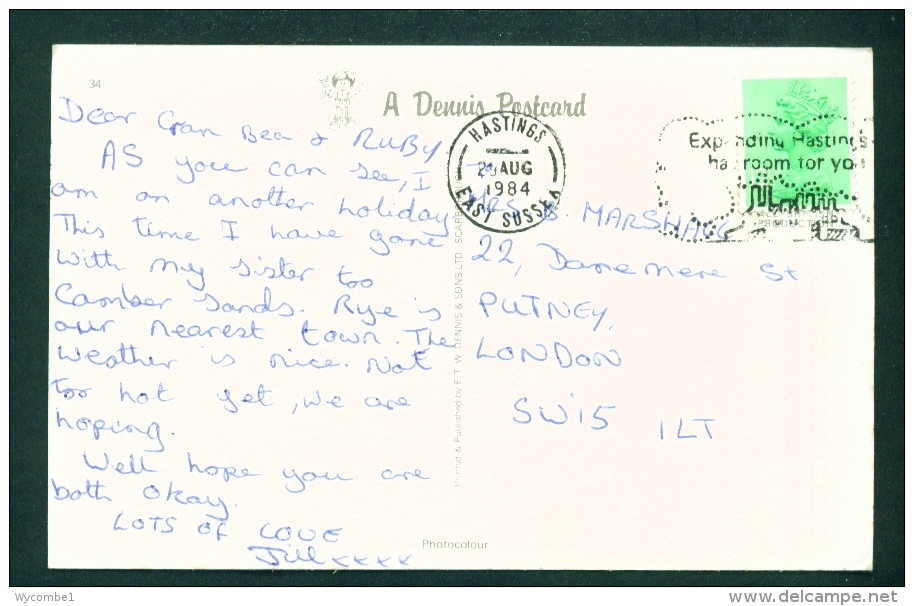 34
A Dennis Postcard
HASTINGS
AUG
1984
EAST SUSSEX
Hastings
room for you
Dear Gran Bea & RuBy.
AS you can see, I
am on another holiday
This time I have gone
with my sister too
Camber Sands. Rye is
our nearest town. The
weather is nice. Not
too hot yet, we are
hoping.
Well hope you are
both okay.
LOTS OF LOVE
Jill xxxx
MRS B. MARSHALL
22, Danemere St
PUTNEY,
LONDON
SW15 1LT
Printed & Published by E. T. W. DENNIS & SONS LTD. SCARBRO
Photocolour
Wycombe1
www.delcampe.net